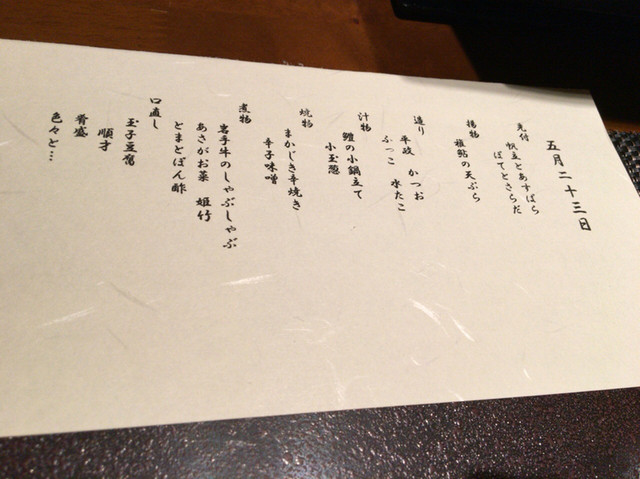 五月二十三日
先付
帆立とあすぱら
ぽてとさらだ
揚物
稚鮎の天ぷら
造り
平政 かつお
ふっこ 水たこ
汁物
鱧の小鍋立て
小玉葱
焼物
まかじき辛焼き
辛子味噌
煮物
岩手牛のしゃぶしゃぶ
あさがお菜 姫竹
とまとぽん酢
口直し
玉子豆腐
順才
肴盛
色々と…